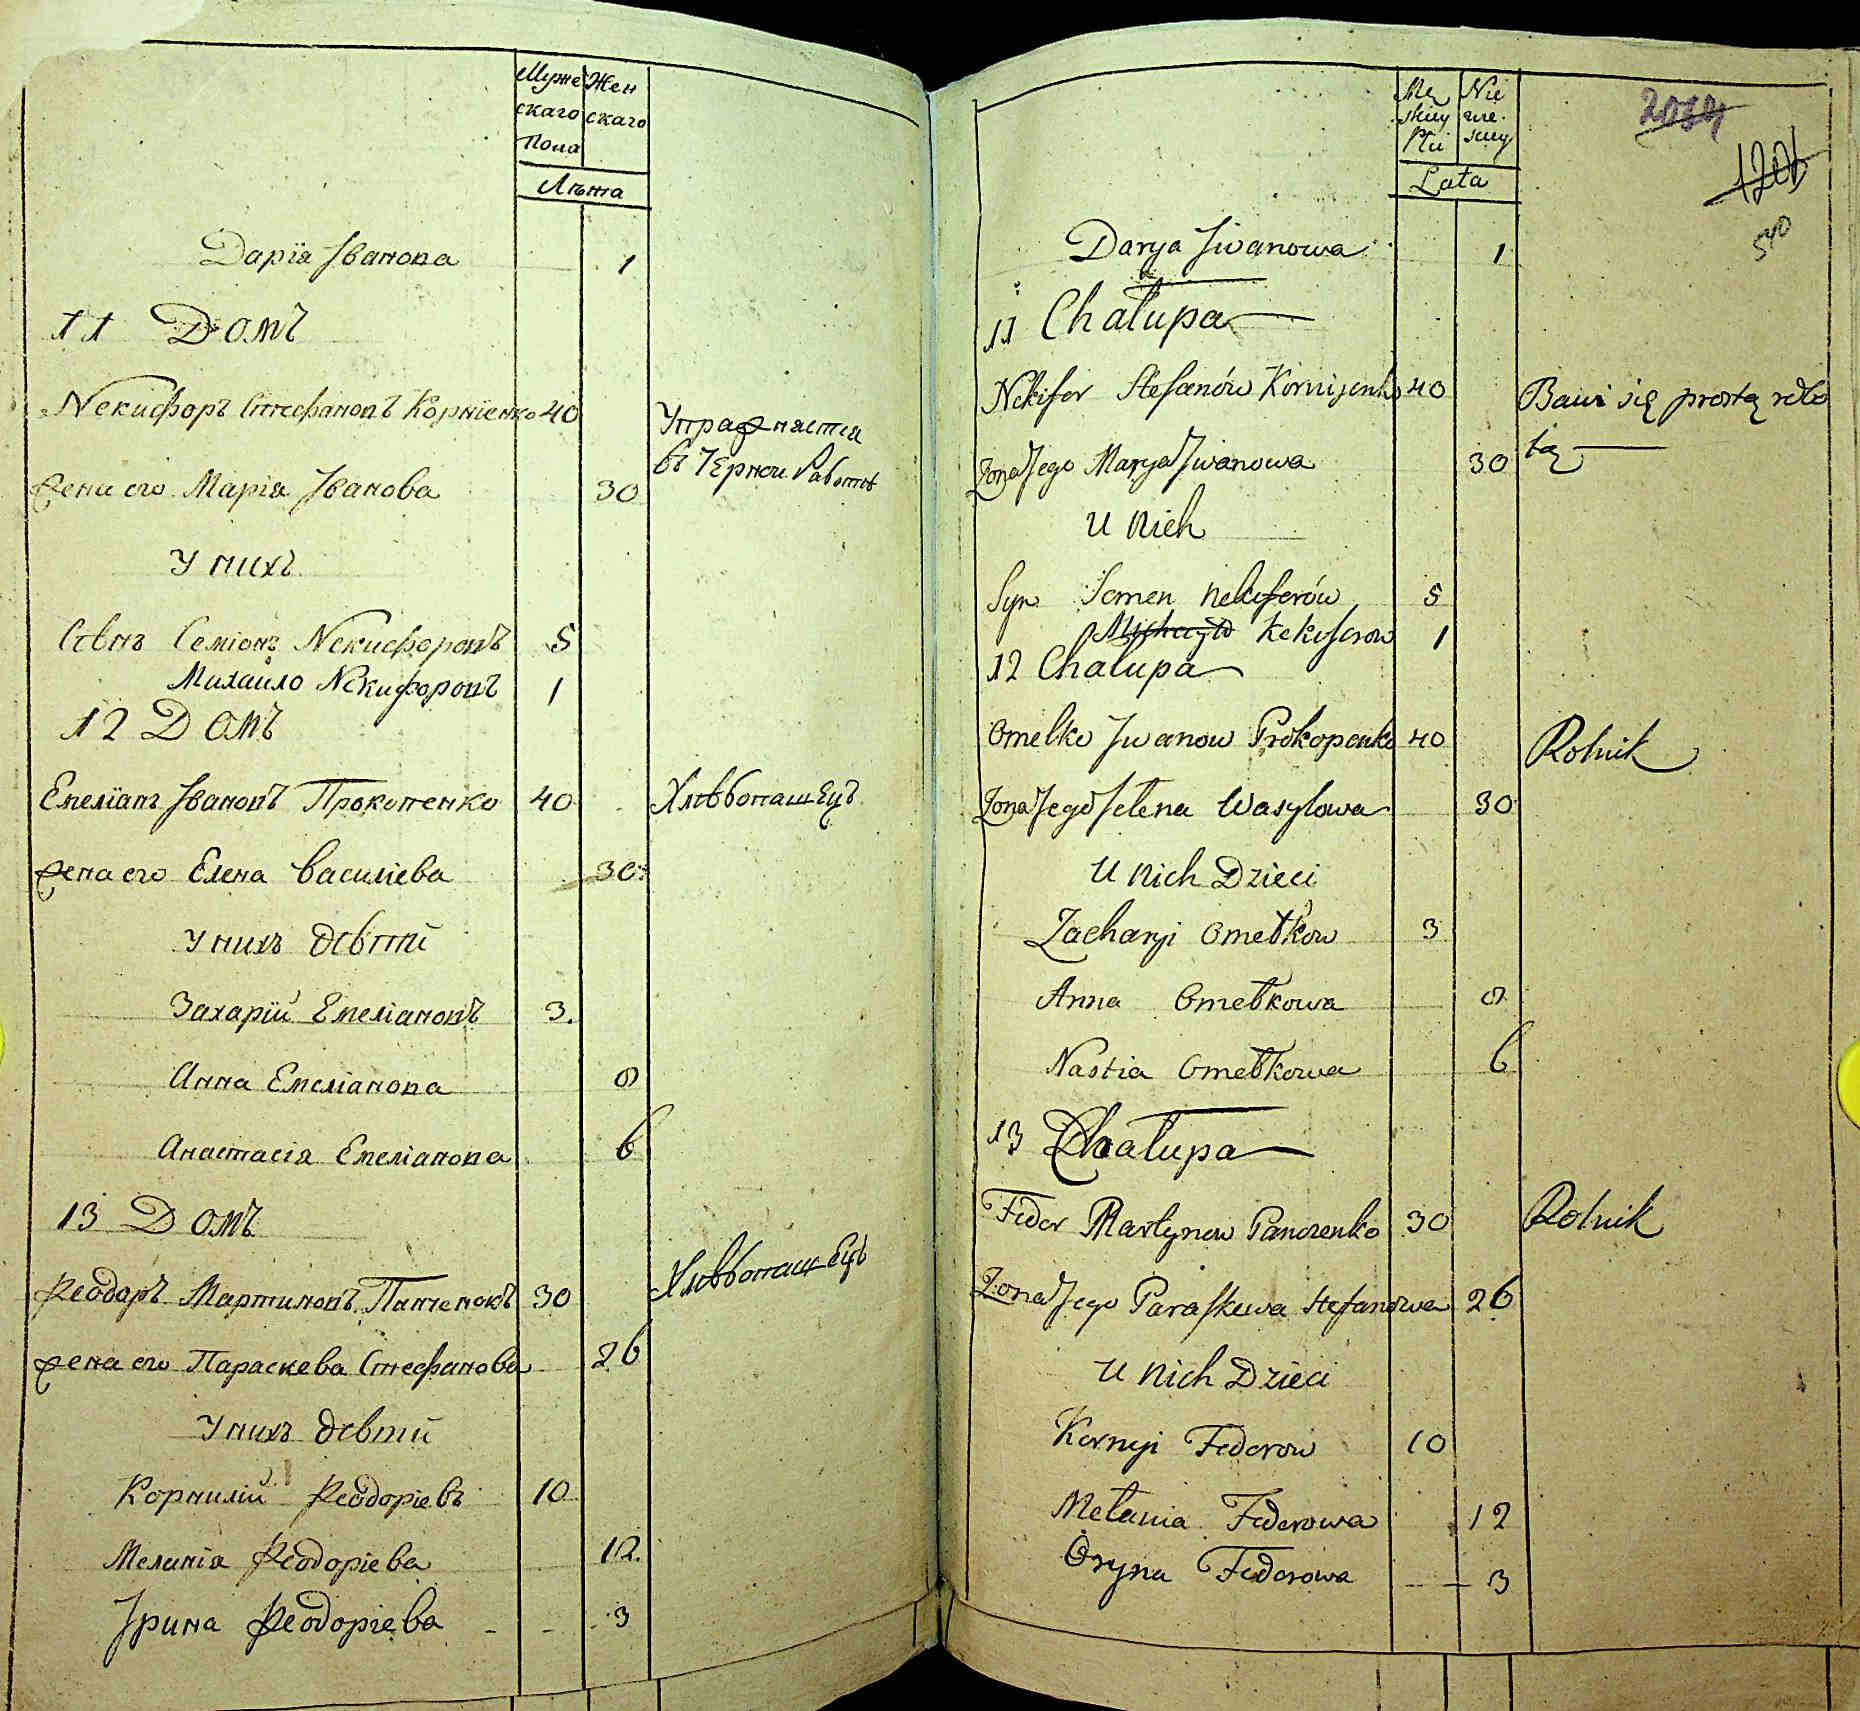 Муже Жен
скаго скаго
Пола
Лѣта
Дарїя Іванова 1
11 Домъ
Некифоръ Стефановъ Корнїенко 40
Упражняется
въ Черной Работѣ
Жена его Марія Іванова 30
У нихъ
Сынъ Семіонъ Некифоровъ 5
Михайло Некифоровъ 1
12 Домъ
Емеліанъ Івановъ Прокопенко 40 Хлѣбопашецъ
Жена его Елена Василіева 30
У нихъ дѣтти
Захарїй Емеліановъ 3.
Анна Емеліанова 8
Анастасія Емеліанова 6
13 Домъ
Феодоръ Мартиновъ Панченокъ 30 Хлѣбопашецъ
Жена его Параскева Стефанова 26
У нихъ дѣтти
Корнилій Феодоріевъ 10
Меланія Феодоріева 12.
Ірина Феодоріева 3
Mę Nie
skiey wie
Płci skiey
Lata
2034
1201
540
Darya Jwanowa 1
11 Chałupa
Nekifor Stefanów Kornijenko 40 Bawi się prostą robo
tą
Żona Jego Marya Jwanowa 30
U nich
Syn Semen Nekiforów 5
Mychayło Nekiforow 1
12 Chałupa
Omelko Jwanow Prokopenko 40 Rolnik
Żona Jego Jełena Wasylowa 30
U nich Dzieci
Zacharyi Omełkow 3
Anna Omełkowa 8
Nastia Omełkowa 6
13 Chałupa
Fedor Martynow Panczenko 30 Rolnik
Żona Jego Paraskewa Stefanowa 26
U nich Dzieci
Kornyi Fedorow 10
Mełania Fedorowa 12
Oryna Fedorowa 3